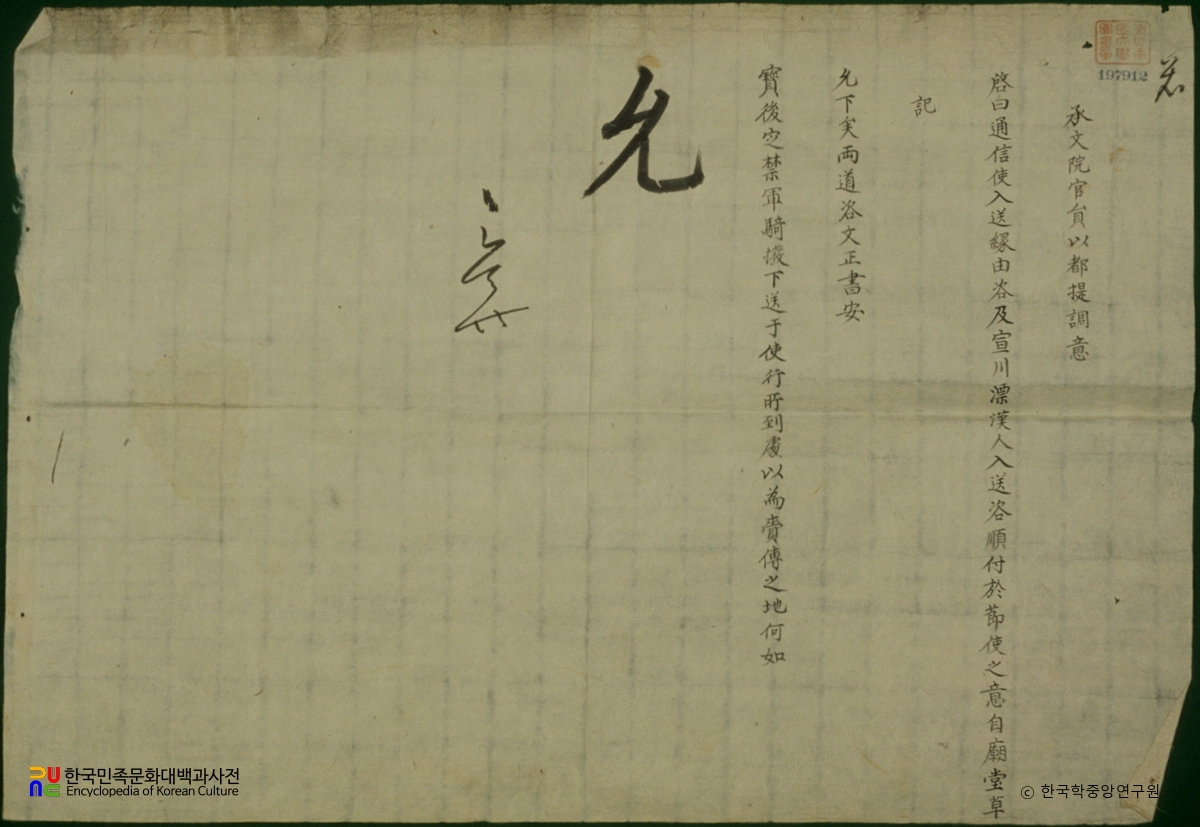 承文院官員以都提調意
啓曰通信使入送緣由咨及宣川漂漢人入送咨順付於節使之意自廟堂草
記
允下矣兩道咨文正書安
寶後定禁軍騎撥下送于使行所到處以為賚傳之地何如
允
197912
한국민족문화대백과사전
Encyclopedia of Korean Culture
© 한국학중앙연구원